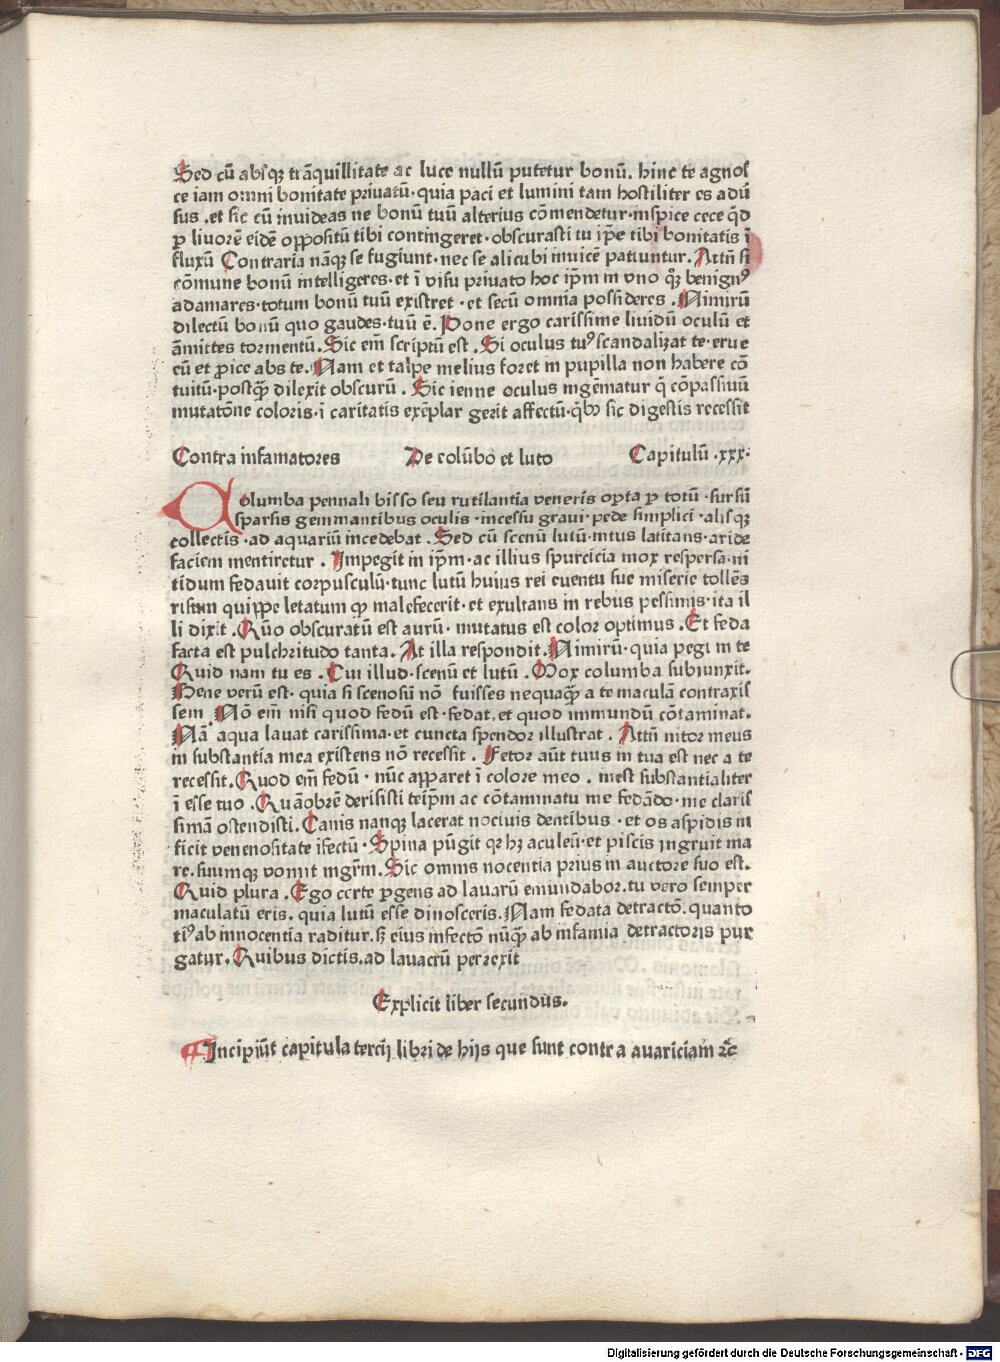 Sed cū absqꝫ trāquillitate ac luce nullū putetur bonū. hinc te agnos
ce iam omni bonitate priuatū·quia paci et lumini tam hostiliter es adū
sus .et sic cū inuideas ne bonū tuū alterius cōmendetur·inspice cece qd̄
ꝑ liuorē eidē oppositū tibi contingeret·obscurasti tu ip̄e tibi bonitatis ī
fluxū Contraria nāqꝫ se fugiunt·nec se alicubi inuicē patiuntur. Attn̄ si
cōmune bonū intelligeres·et ī visu priuato hoc ip̄m in vno qr̄ benignꝰ
adamares·totum bonū tuū existret ·et secū omnia possideres .Nimirū
dilectū bonū quo gaudes·tuū ē.Pone ergo carissime liuidū oculū et
āmittes tormentū.Sic em̄ scriptū est .Si oculus tuꝰ scandalizat te·erue
eū et ꝓice abs te.Nam et talpe melius foret in pupilla non habere cō
tuitū·postqꝫ dilexit obscurū. Sic ienne oculus ingēmatur q̄ cōpassiuū
mutatōne coloris·ī caritatis exēplar gerit affectū·qb̄o sic digestis recessit
Contra infamatores De colūbo et luto Capitulū .xxx.
Columba pennali bisso seu rutilantia veneris opta ꝑ totū ·sursū
sparsis gemmantibus oculis ·incessu graui·pede simplici·alisqꝫ
collectis ·ad aquariū incedebat .Sed cū scenū lutū·intus latitans·aride
faciem mentiretur .Impegit in ip̄m·ac illius spurcicia mox respersa·ni
tidum fedauit corpusculū·tunc lutū huius rei euentu sue miserie tollēs
risum quippe letatum ꝙ malefecerit·et exultans in rebus pessimis·ita il
li dixit .Quō obscuratū est aurū· mutatus est color optimus .Et feda
facta est pulchritudo tanta. At illa respondit.Nimirū·quia pegi in te
Quid nam tu es .Cui illud·scenū et lutū .Mox columba subiunxit.
Bene verū est· quia si scenosū nō fuisses nequaqꝫ a te maculā contraxis
sem .Nō em̄ nisi quod fedū est·fedat.et quod inmundū cōtaminat.
Nā aqua lauat carissima·et cuncta spendor illustrat .Attn̄ nitor meus
in substantia mea existens nō recessit .Fetor aūt tuus in tua est nec a te
recessit.Quod em̄ fedū · nūc apparet ī colore meo . inest substantialiter
ī esse tuo .Quāobrē derisisti teip̄m ac cōtaminatu me fedādo·me claris
simā ostendisti.Canis nanqꝫ lacerat nociuis dentibus ·et os aspidis in
ficit venenositate īfectū·Spina pūgit qꝛ hꝫ aculeū·et piscis ingruit ma
re.suumqꝫ vomit mgr̄m.Sic omnis nocentia prius in auctore suo est.
Quid plura .Ego certe ꝑgens ad lauarū emundabor.tu vero semper
maculatū eris. quia lutū esse dinosceris.Nam fedata detractō.quanto
tiꝰab innocentia raditur.sꝫ eius infectō nūqꝫ ab infamia detractoris pur
gatur.Quibus dictis.ad lauacrū perrexit
Explicit liber secundus.
Incipiūt capitula tercij libri de hijs que sunt contra auariciam ꝛc̄